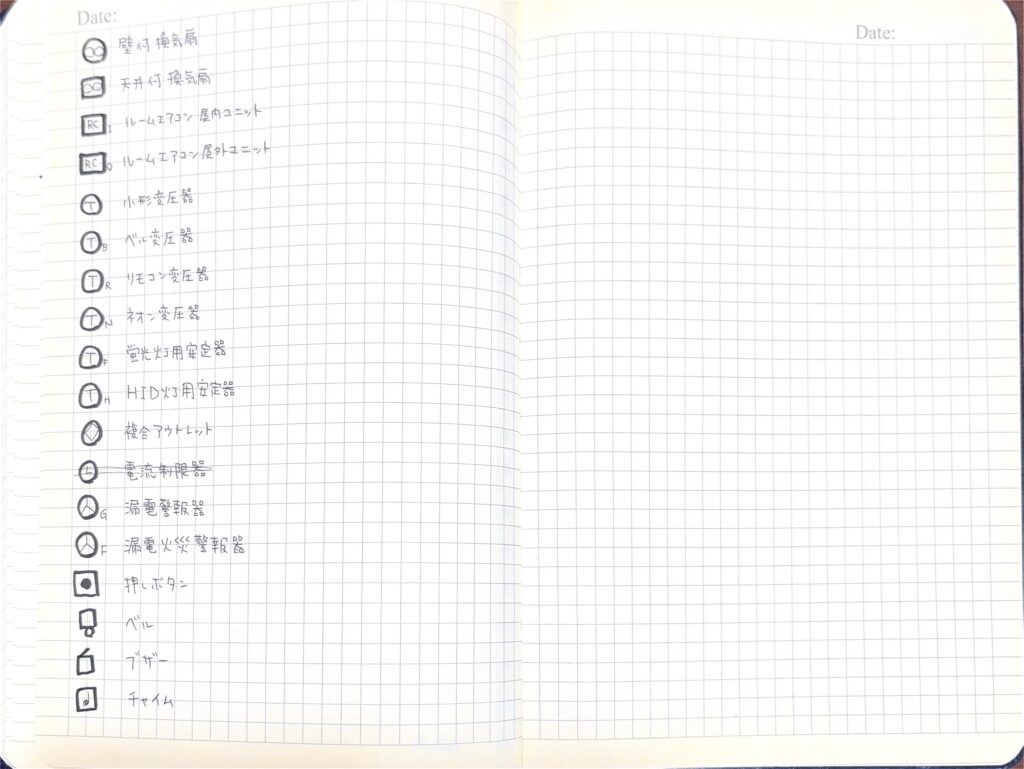 Date:
壁付換気扇
天井付換気扇
RC I ルームエアコン屋内ユニット
RC O ルームエアコン屋外ユニット
T 小形変圧器
T B ベル変圧器
T R リモコン変圧器
T N ネオン変圧器
T F 蛍光灯用安定器
T H HID灯用安定器
複合アウトレット
L 電流制限器
G 漏電警報器
F 漏電火災警報器
押しボタン
ベル
ブザー
チャイム
Date: